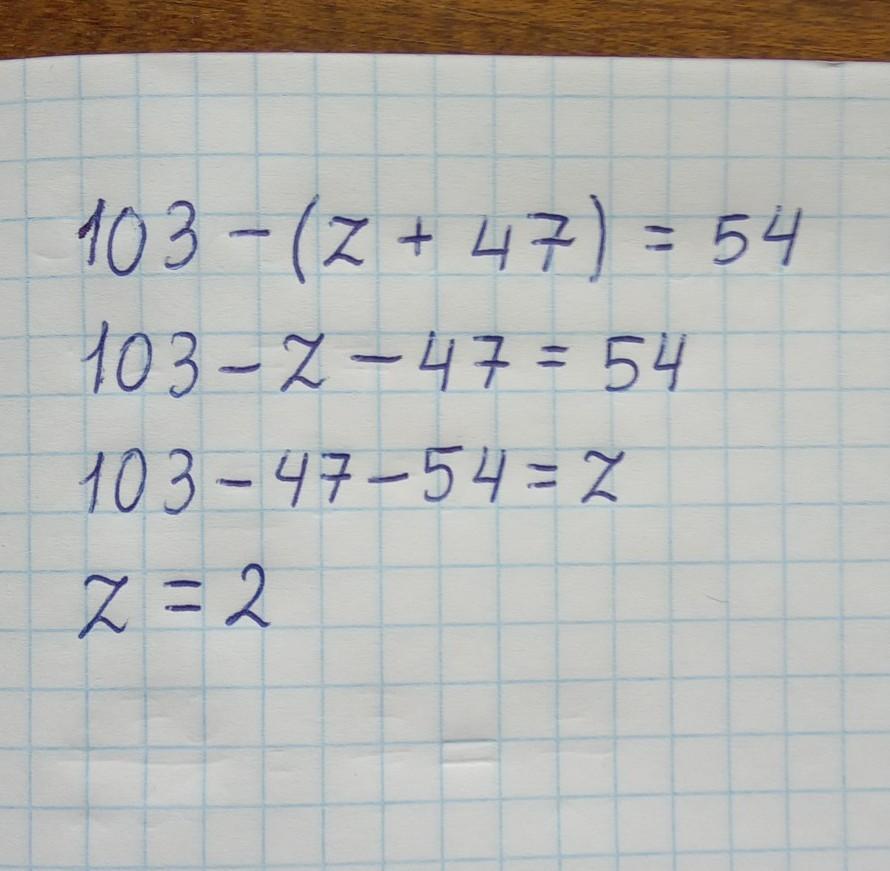 103 - (z + 47) = 54
103 - z - 47 = 54
103 - 47 - 54 = z
z = 2